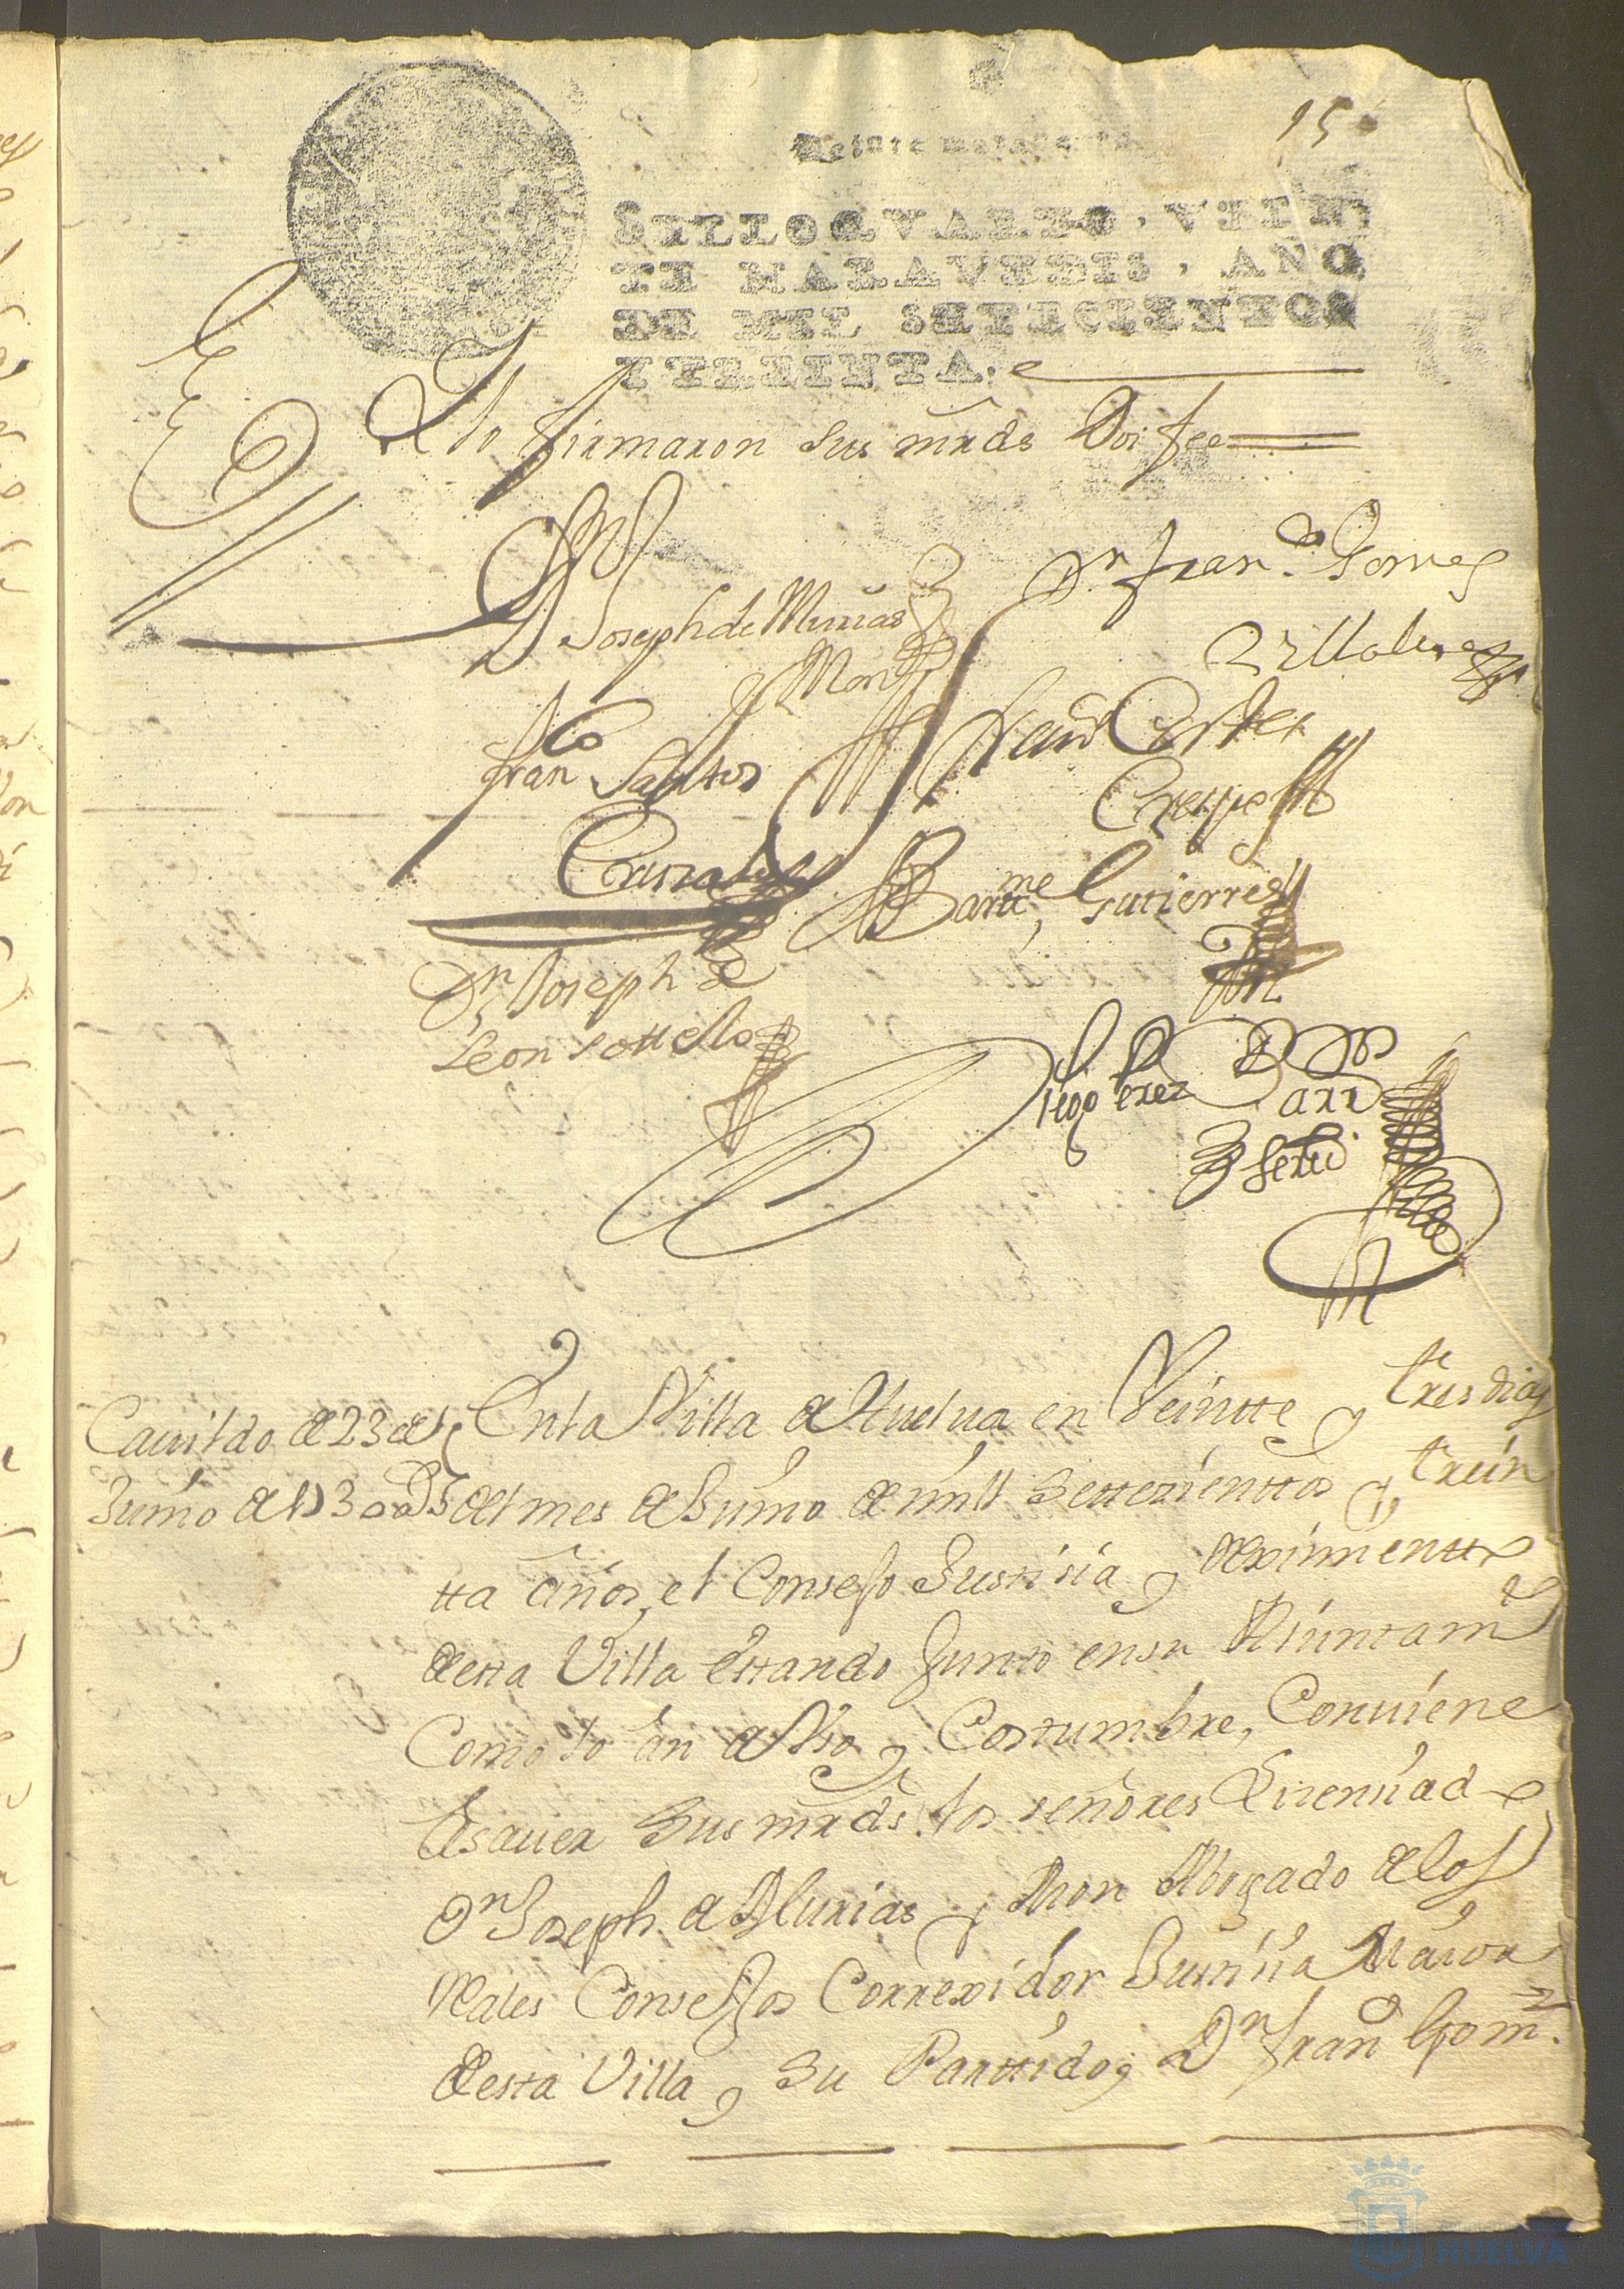 15
Veinte maravedis
SELLO QVARTO, VEIN
TE MARAVEDIS, AÑO
DE MIL SETECIENTOS
Y TREINTA.
Y lo firmaron Sus mrds Doi fee
Dn Joseph de Murias
y Mon
Dn Franco Gomes
Franco Santos
Franco Cortes
Crespo
Bartme Gutierres
Dn Joseph de
Leon sottelo
Diego Perez
Cauildo de 23 de
Junio de 1730 as
Enla Villa de Huelua en Veintte y tres dias
del mes de Junio de mill settezienttos y trein
tta años, el Consejo Justisia y Reximientto
desta Villa estando Junto en su Aiuntamto
Como lo an de Vso y Costumbre, Conuiene
asauer Sus mrds. los señores Lizenciado
Dn Joseph de Murias y Mon Abogado delos
Reales Consejos Correxidor Justizia Maior
desta Villa y Su Parttido, Dn Franco Gomz.
HUELVA